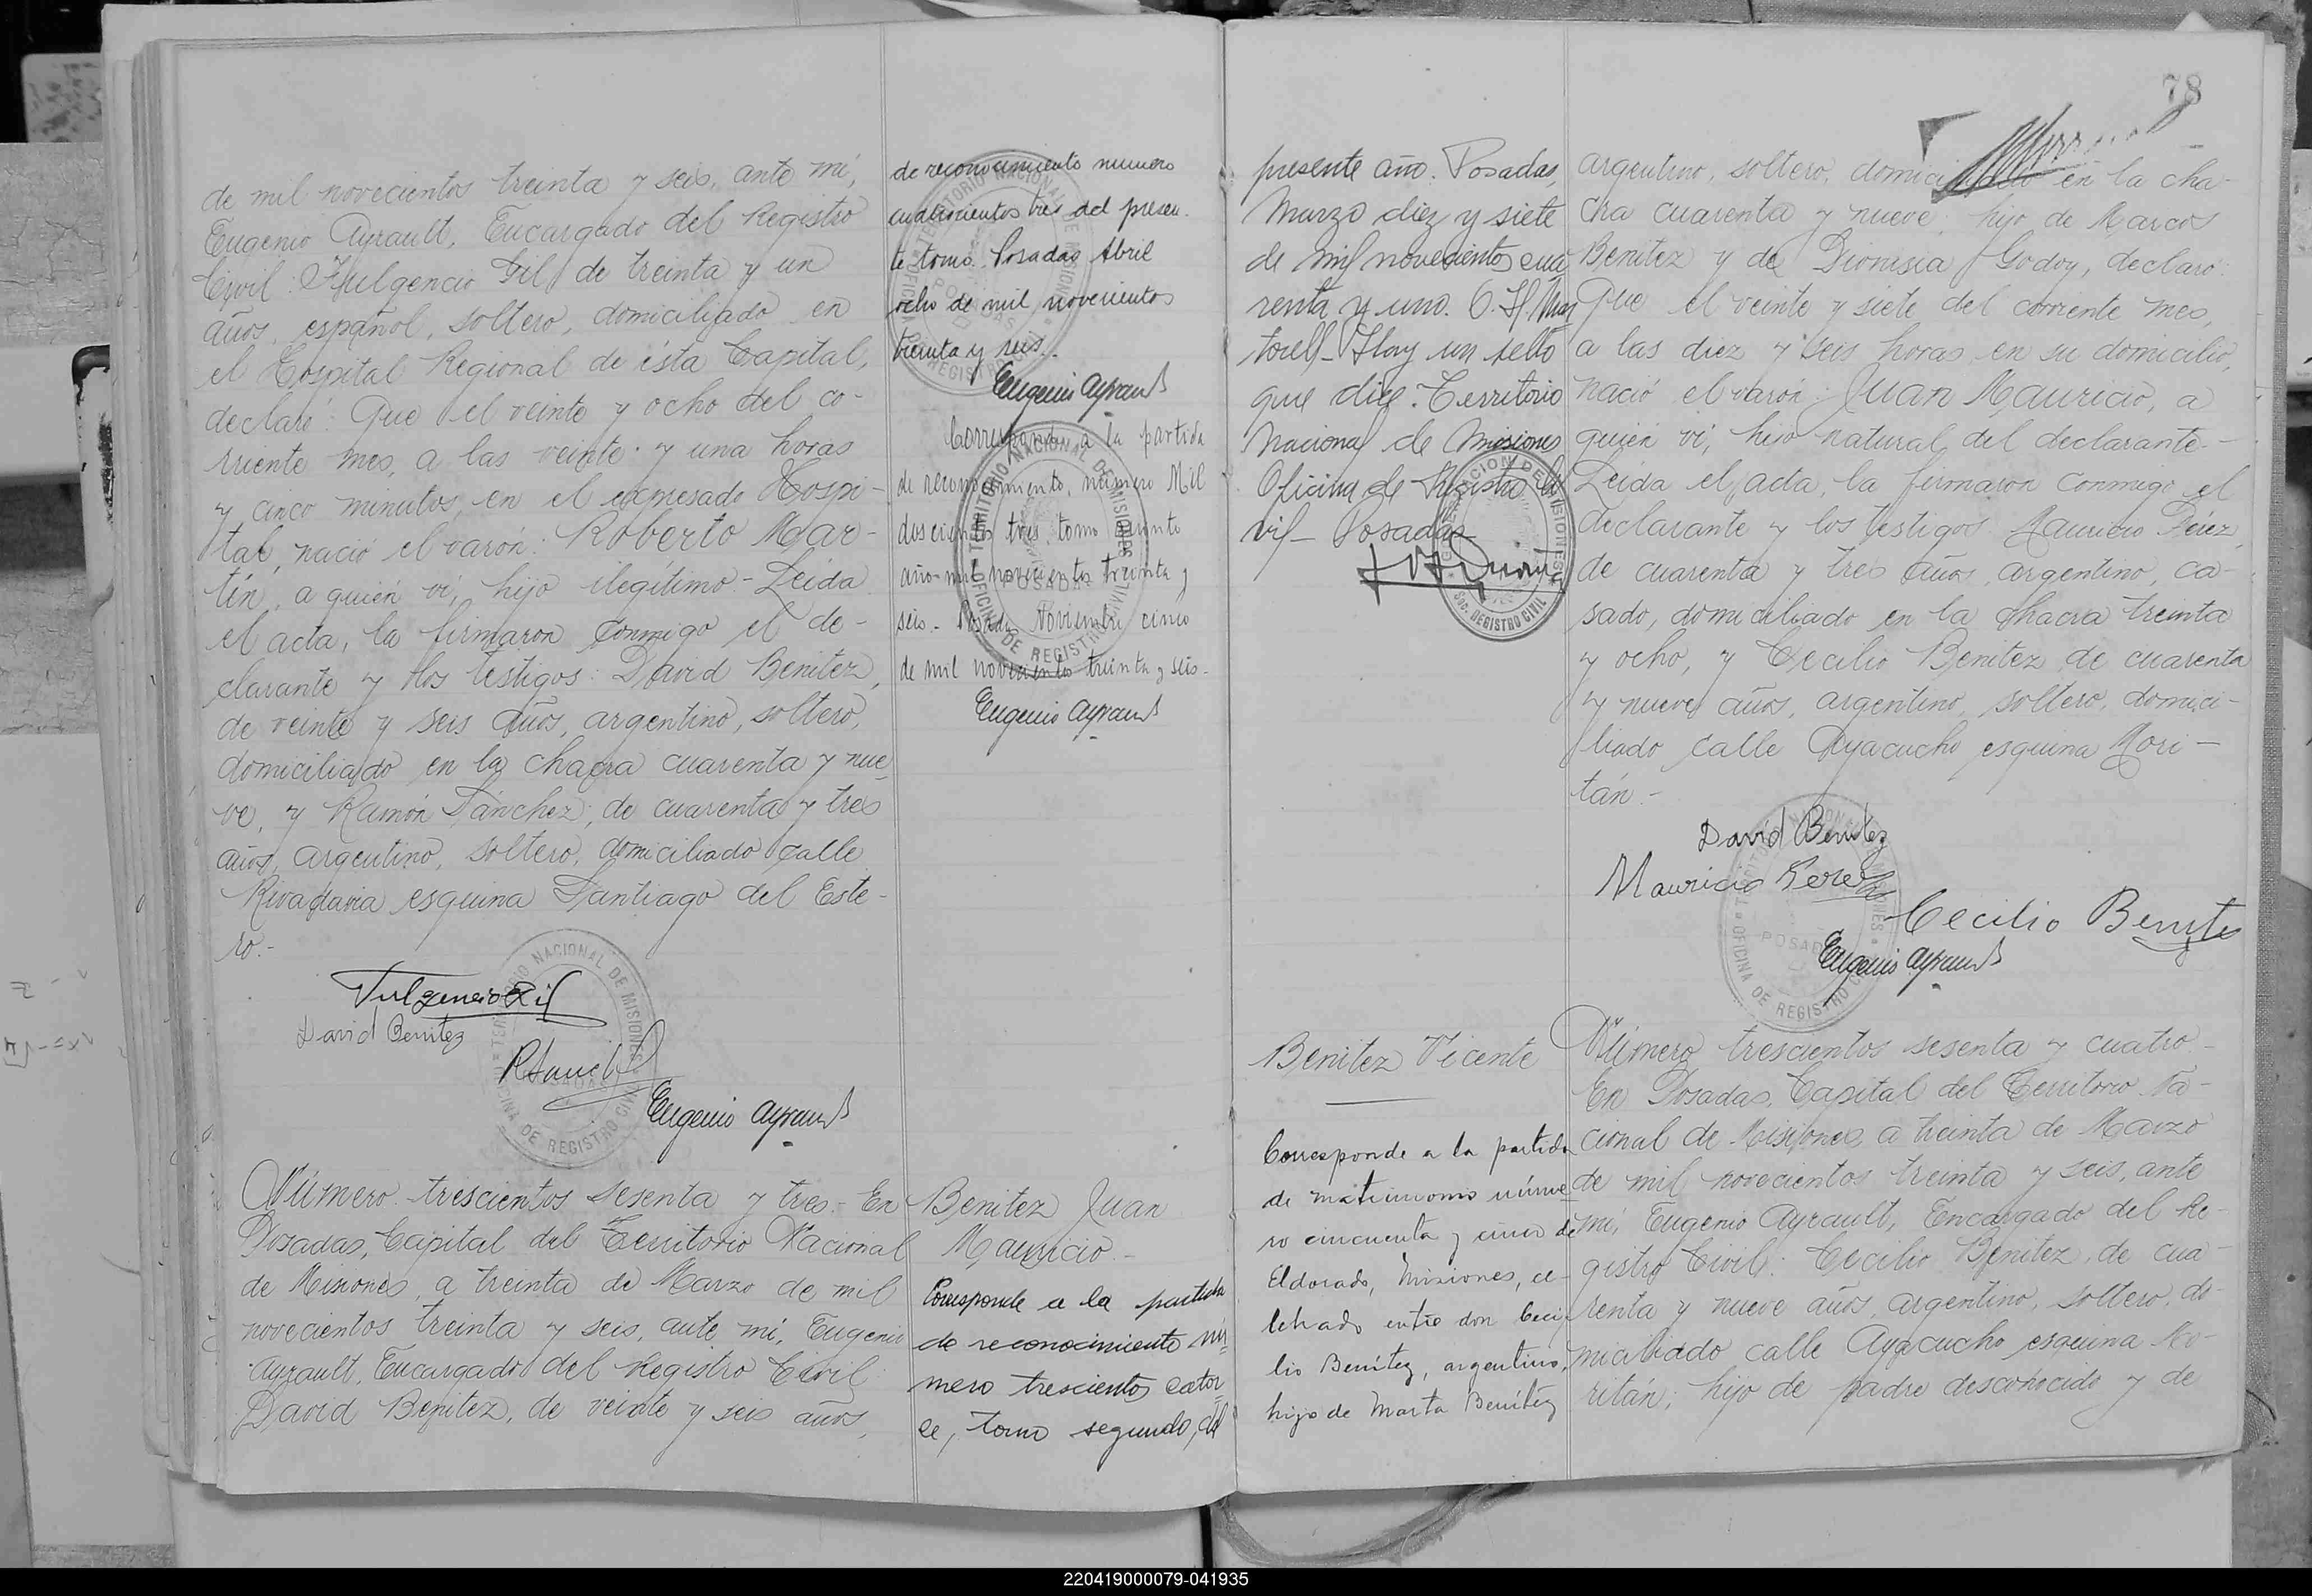 de mil novecientos treinta y seis, ante mí,
Eugenio Ayrault, Encargado del Registro
Civil: Fulgencio Gil de treinta y un
años, español, soltero, domiciliado en
el Hospital Regional de ésta Capital,
declaró: Que el veinte y ocho del co-
rriente mes, a las veinte y una horas
y cinco minutos, en el expresado Hospi-
tal, nació el varón: Roberto Mar-
tín, a quién ví, hijo ilegítimo.- Leída
el acta, la firmaron conmigo el de-
clarante y los testigos: David Benitez,
de veinte y seis años, argentino, soltero,
domiciliado en la chacra cuarenta y nue
ve, y Ramón Sánchez, de cuarenta y tres
años, argentino, soltero, domiciliado calle
Rivadavia esquina Santiago del Este-
ro.-
Fulgencio Gil
David Benitez
Eugenio Ayrault
Número trescientos sesenta y tres.- En
Posadas, Capital del Territorio Nacional
de Misiones, a treinta de Marzo de mil
novecientos treinta y seis, ante mí, Eugenio
Ayrault, Encargado del Registro Civil
David Benitez, de veinte y seis años,
de reconocimiento numero
cuatrocientos tres del presen-
te tomo. Posadas Abril
ocho de mil novecientos
treinta y seis.
Eugenio Ayrault
Corresponde a la partida
de reconocimiento, número Mil
doscientos tres tomo
año mil novecientos treinta y
seis.- Posadas Noviembre cinco
de mil novecientos treinta y seis.-
Eugenio Ayrault
Benitez Juan
Mauricio.-
Corresponde a la partida
de reconocimiento nú-
mero trescientos cator-
ce, tomo segundo, del
78
presente año. Posadas,
Marzo diez y siete
de mil novecientos cua
renta y uno.
Hay un sello
que dice: Territorio
Nacional de Misiones
Oficina de Registro Ci
vil- Posadas-
argentino, soltero, domiciliado en la cha-
cra cuarenta y nueve, hijo de Marcos
Benitez y de Dionisia Godoy, declaró:
Que el veinte y siete del corriente mes,
a las diez y seis horas, en su domicilio,
nació el varón: Juan Mauricio, a
quién ví, hijo natural del declarante.-
Leída el acta, la firmaron conmigo el
declarante y los testigos Mauricio Pérez,
de cuarenta y tres años, argentino, ca-
sado, domiciliado en la chacra treinta
y ocho, y Cecilio Benitez, de cuarenta
y nueve años, argentino, soltero, domici-
liado calle Ayacucho esquina Mori-
tán.-
David Benitez
Mauricio Perez
Cecilio Benitez
Eugenio Ayrault
Benitez Vicente
Corresponde a la partida
de matrimonio núme
ro cincuenta y cinco de
Eldorado, Misiones, ce-
lebrado entre don Ceci
lio Benítez, argentino,
hijo de Marta Benítez
Número trescientos sesenta y cuatro.-
En Posadas, Capital del Territorio Na-
cional de Misiones, a treinta de Marzo
de mil novecientos treinta y seis, ante
mí, Eugenio Ayrault, Encargado del Re-
gistro Civil: Cecilio Benitez, de cua-
renta y nueve años, argentino, soltero, do-
miciliado calle Ayacucho esquina Mo-
ritán, hijo de padre desconocido y de
220419000079-041935